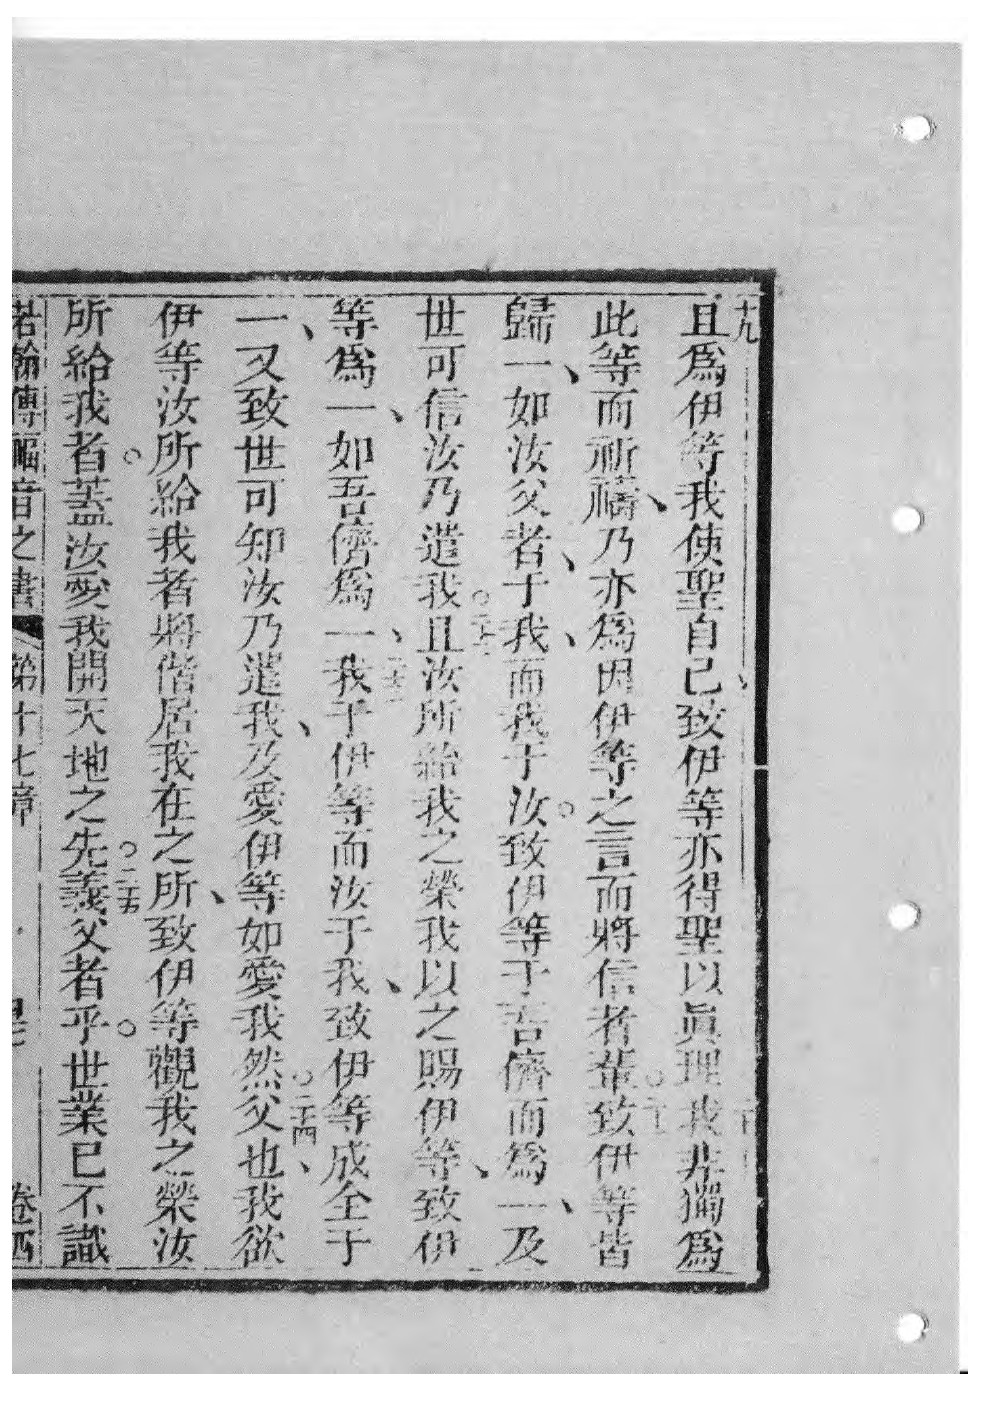 十九
且爲伊等我使聖自己致伊等亦得聖以眞理二十我非獨爲
此等而祈禱、乃亦爲因伊等之言而將信者輩○二十一致伊等皆
歸一、如汝父者、于我、而我于汝○致伊等于吾儕而爲一、及
世可信汝乃遣我○二十二且汝所給我之榮我以之賜伊等、致伊
等爲一、如吾儕爲一、二十三我于伊等而汝于我、致伊等成全于
一、又致世可知汝乃遣我、及愛伊等如愛我○二十四然父也、我欲
伊等汝所給我者將偕居我在之所、致伊等觀我之榮汝
所給我者○蓋汝愛我開天地之先○二十五義父者乎○世業已不識
若翰傳福音之書 第十七章 卷四